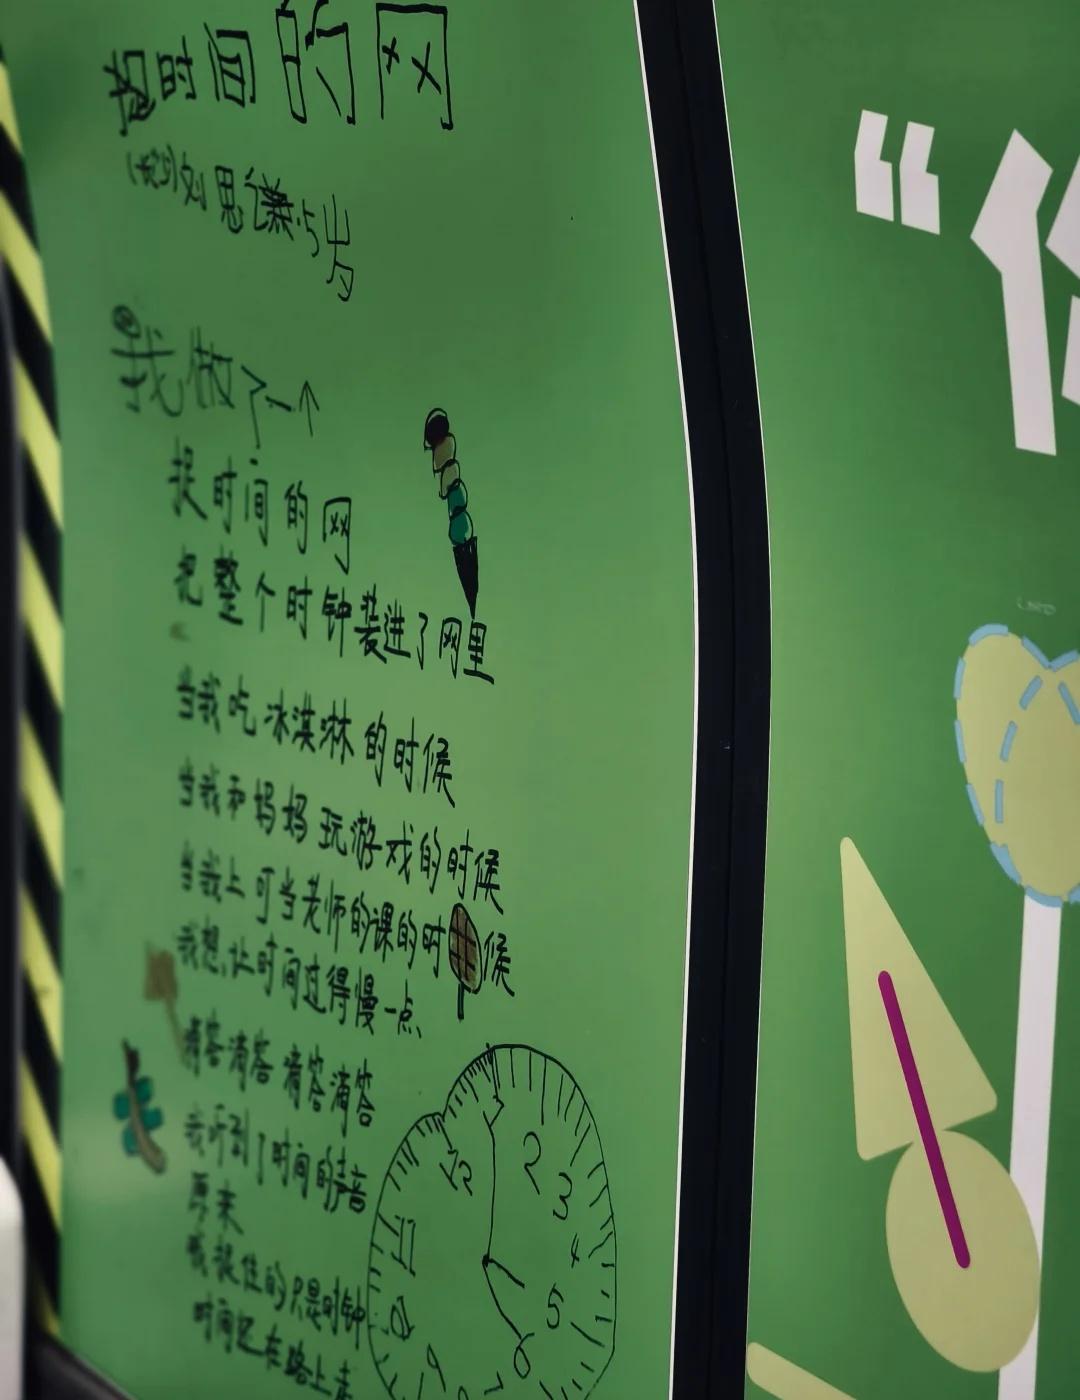 捉时间的网
刘思谦 5岁
我做了一个
捉时间的网
把整个时钟装进了网里
当我吃冰淇淋的时候
当我和妈妈玩游戏的时候
当我上可当老师的课的时候
我想让时间过得慢一点
滴答滴答 滴答滴答
我听到了时间的声音
原来
我捉住的只是时钟
时间还在路上走
12
1
2
3
4
5
6
7
9
10
11
“